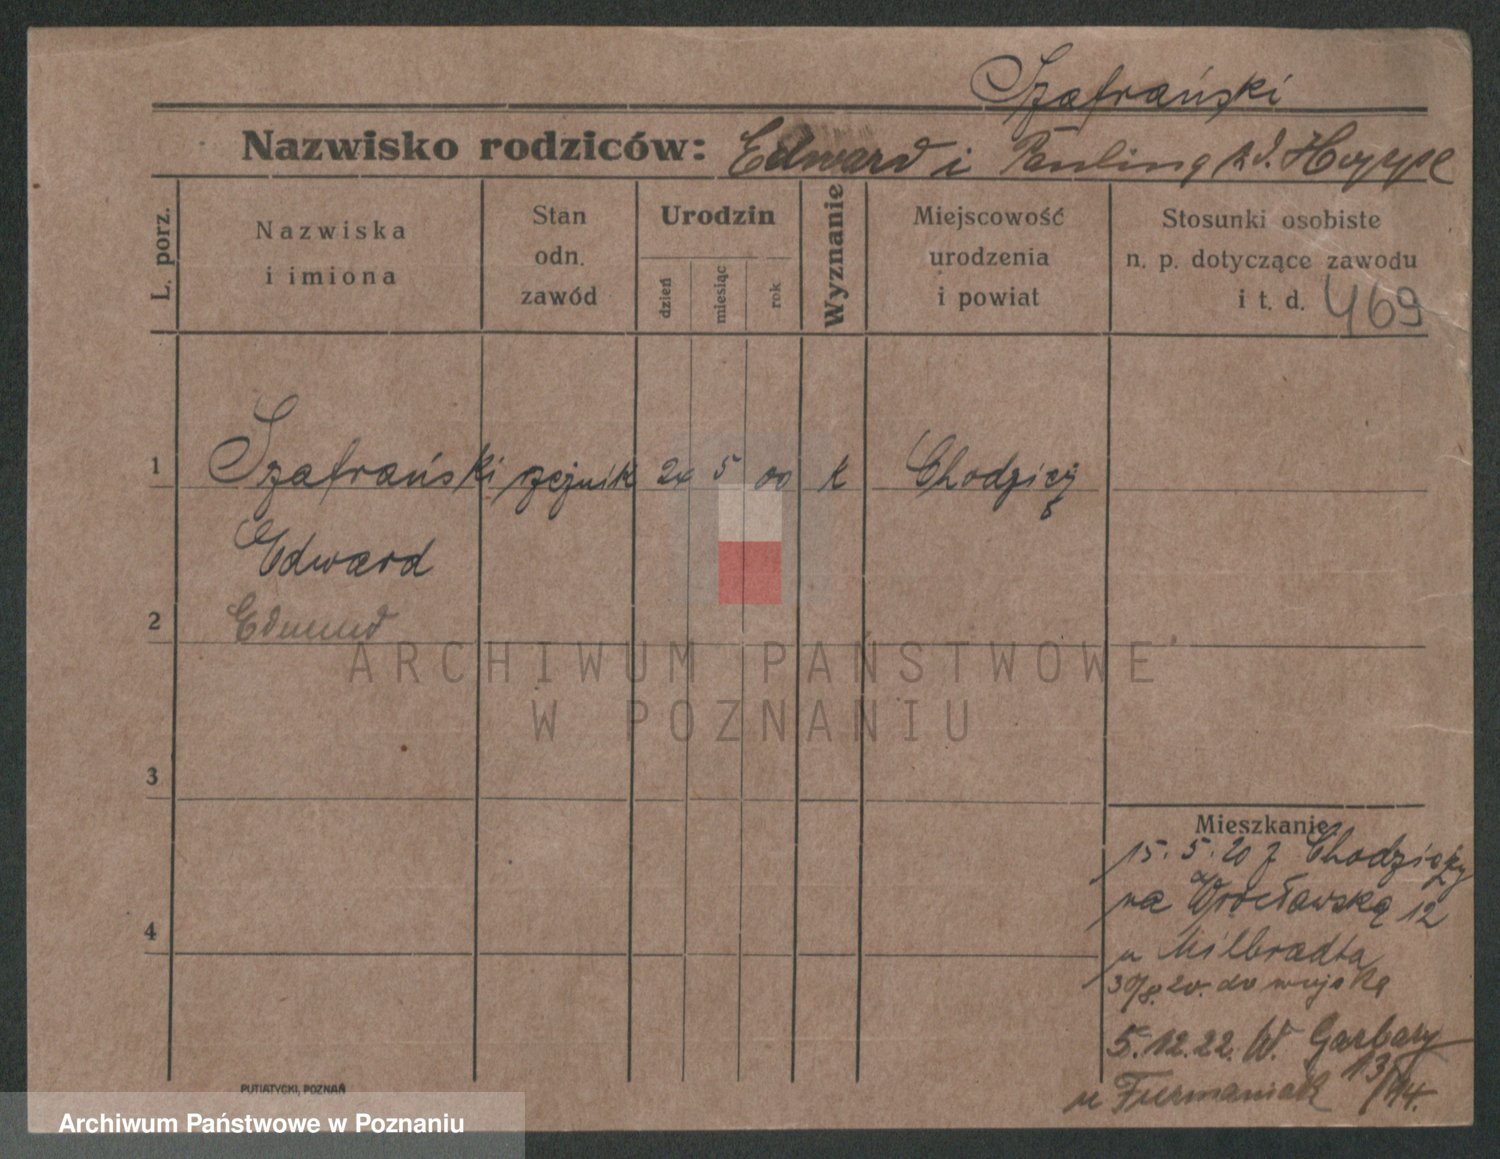 Szafrański
Nazwisko rodziców: Edward i Paulina z d. Hoppe
L. porz.
Nazwiska
i imiona
Stan
odn.
zawód
Urodzin
dzień
miesiąc
rok
Wyznanie
Miejscowość
urodzenia
i powiat
Stosunki osobiste
n. p. dotyczące zawodu
i t. d. 469
1 Szafrański rzeźnik 24 5 00 k Chodzież
Edward
2 Edmund
ARCHIWUM PAŃSTWOWE
W POZNANIU
3
Mieszkanie:
15. 5. 20 z Chodzieży
na Wrocławską 12
4
u Milbradta
30/8. 20. do wojska
5. 12. 22. W. Garbary
13/14.
u Furmaniak
PUTIATYCKI, POZNAŃ
Archiwum Państwowe w Poznaniu